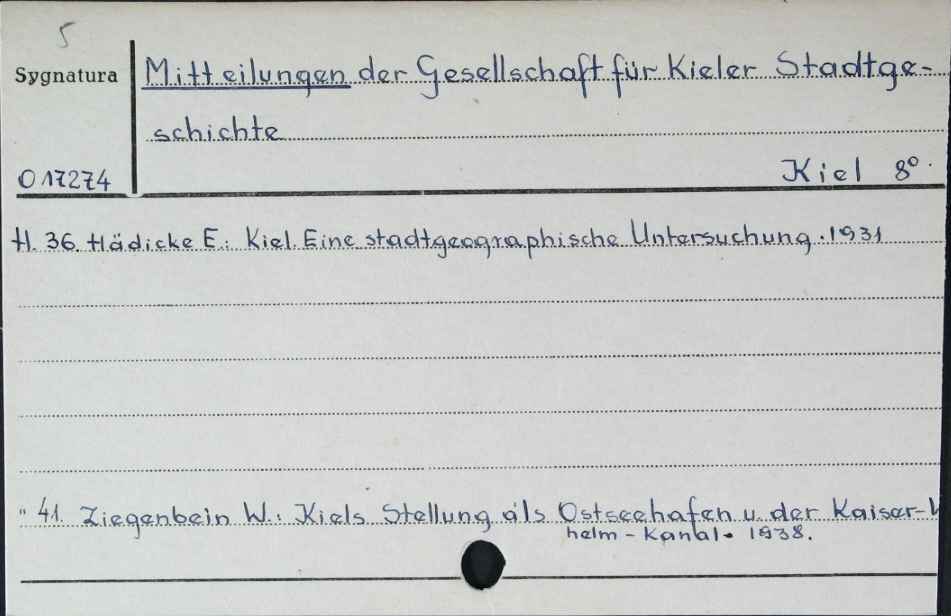 5
Sygnatura
Mitteilungen der Gesellschaft für Kieler Stadtge-
schichte
O 17274
Kiel 8°.
H. 36. Hädicke E.: Kiel. Eine stadtgeographische Untersuchung. 1931
" 41. Ziegenbein W.: Kiels Stellung als Ostseehafen u. der Kaiser-W
helm-Kanal. 1938.